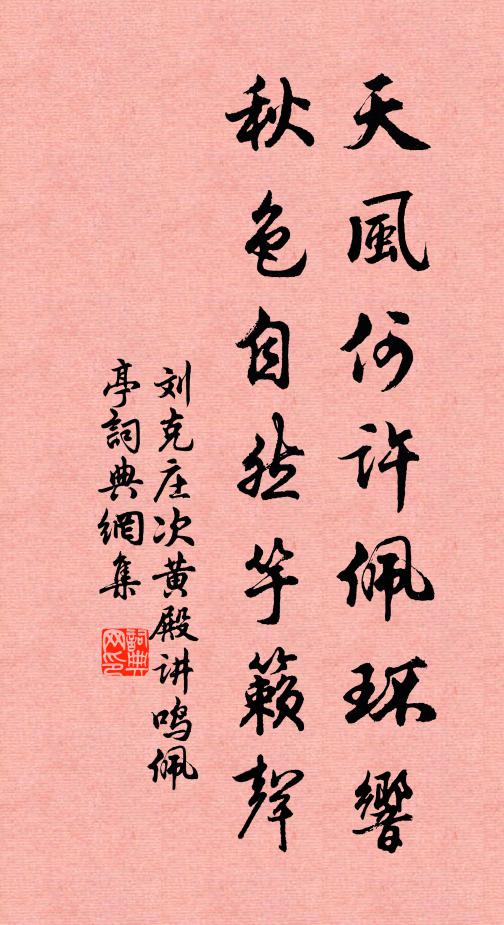 天風何許佩珠響
秋色自然竽籟聲
刘克庄次黄殿讲鸣佩
亭詞典網集
詞典网印